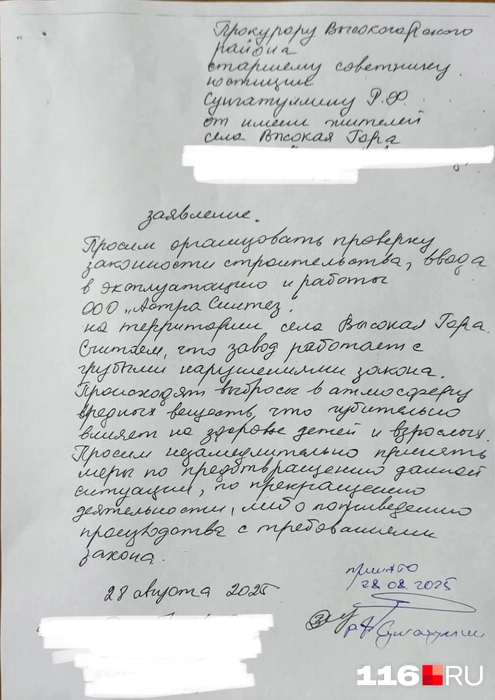 Прокурору Высокогорского
района
старшему советнику
юстиции
Сунгатуллину Р.Ф.
от имени жителей
села Высокая Гора
заявление.
Просим организовать проверку
законности строительства, ввода
в эксплуатацию и работы
ООО „Астра Синтез.
на территории села Высокая Гора.
Считаем, что завод работает с
грубыми нарушениями закона.
Происходят выбросы в атмосферу
вредных веществ, что губительно
влияет на здоровье детей и взрослых.
Просим незамедлительно принять
меры по предотвращению данной
ситуации, по прекращению
деятельности, либо приведению
производства с требованиями
закона.
принято
28.08.2025
28 августа 2025
Р.Ф. Сунгатуллин
116.RU